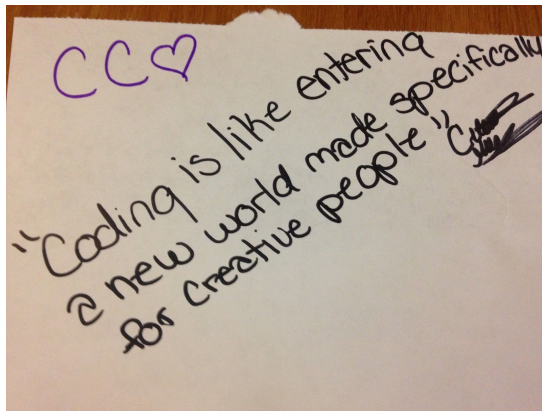 CC♡
"Coding is like entering
a new world made specifically
for creative people"